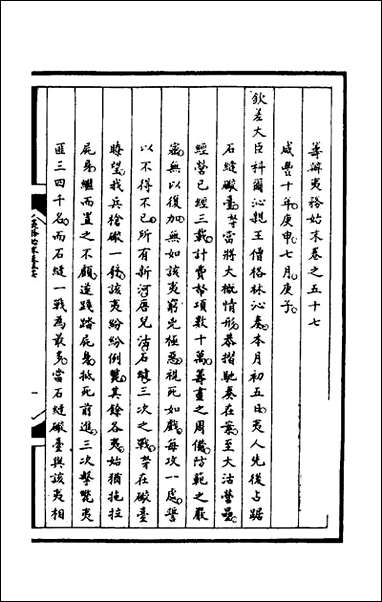 籌辦夷務始末卷之五十七
咸豐十年庚申七月庚子
欽差大臣科爾沁親王僧格林沁奏本月初五日夷人先後占踞
石縫礮臺等當將大概情形恭摺馳奏在案至大沽營壘
經營已經三載計費帑項數十萬籌畫之周備防範之嚴
密無以復加無如該夷窮兇極惡視死如戲每攻一處誓
以不得不已所有新河唐兒沽石縫三次之戰等在礮臺
瞭望我兵槍礮一發該夷紛紛倒斃其餘各夷始猶拖拉
屍身繼而置之不顧遂踐踏屍身抵死前進三次擊斃夷
匪三四千名而石縫一戰為最多當石縫礮臺與該夷相